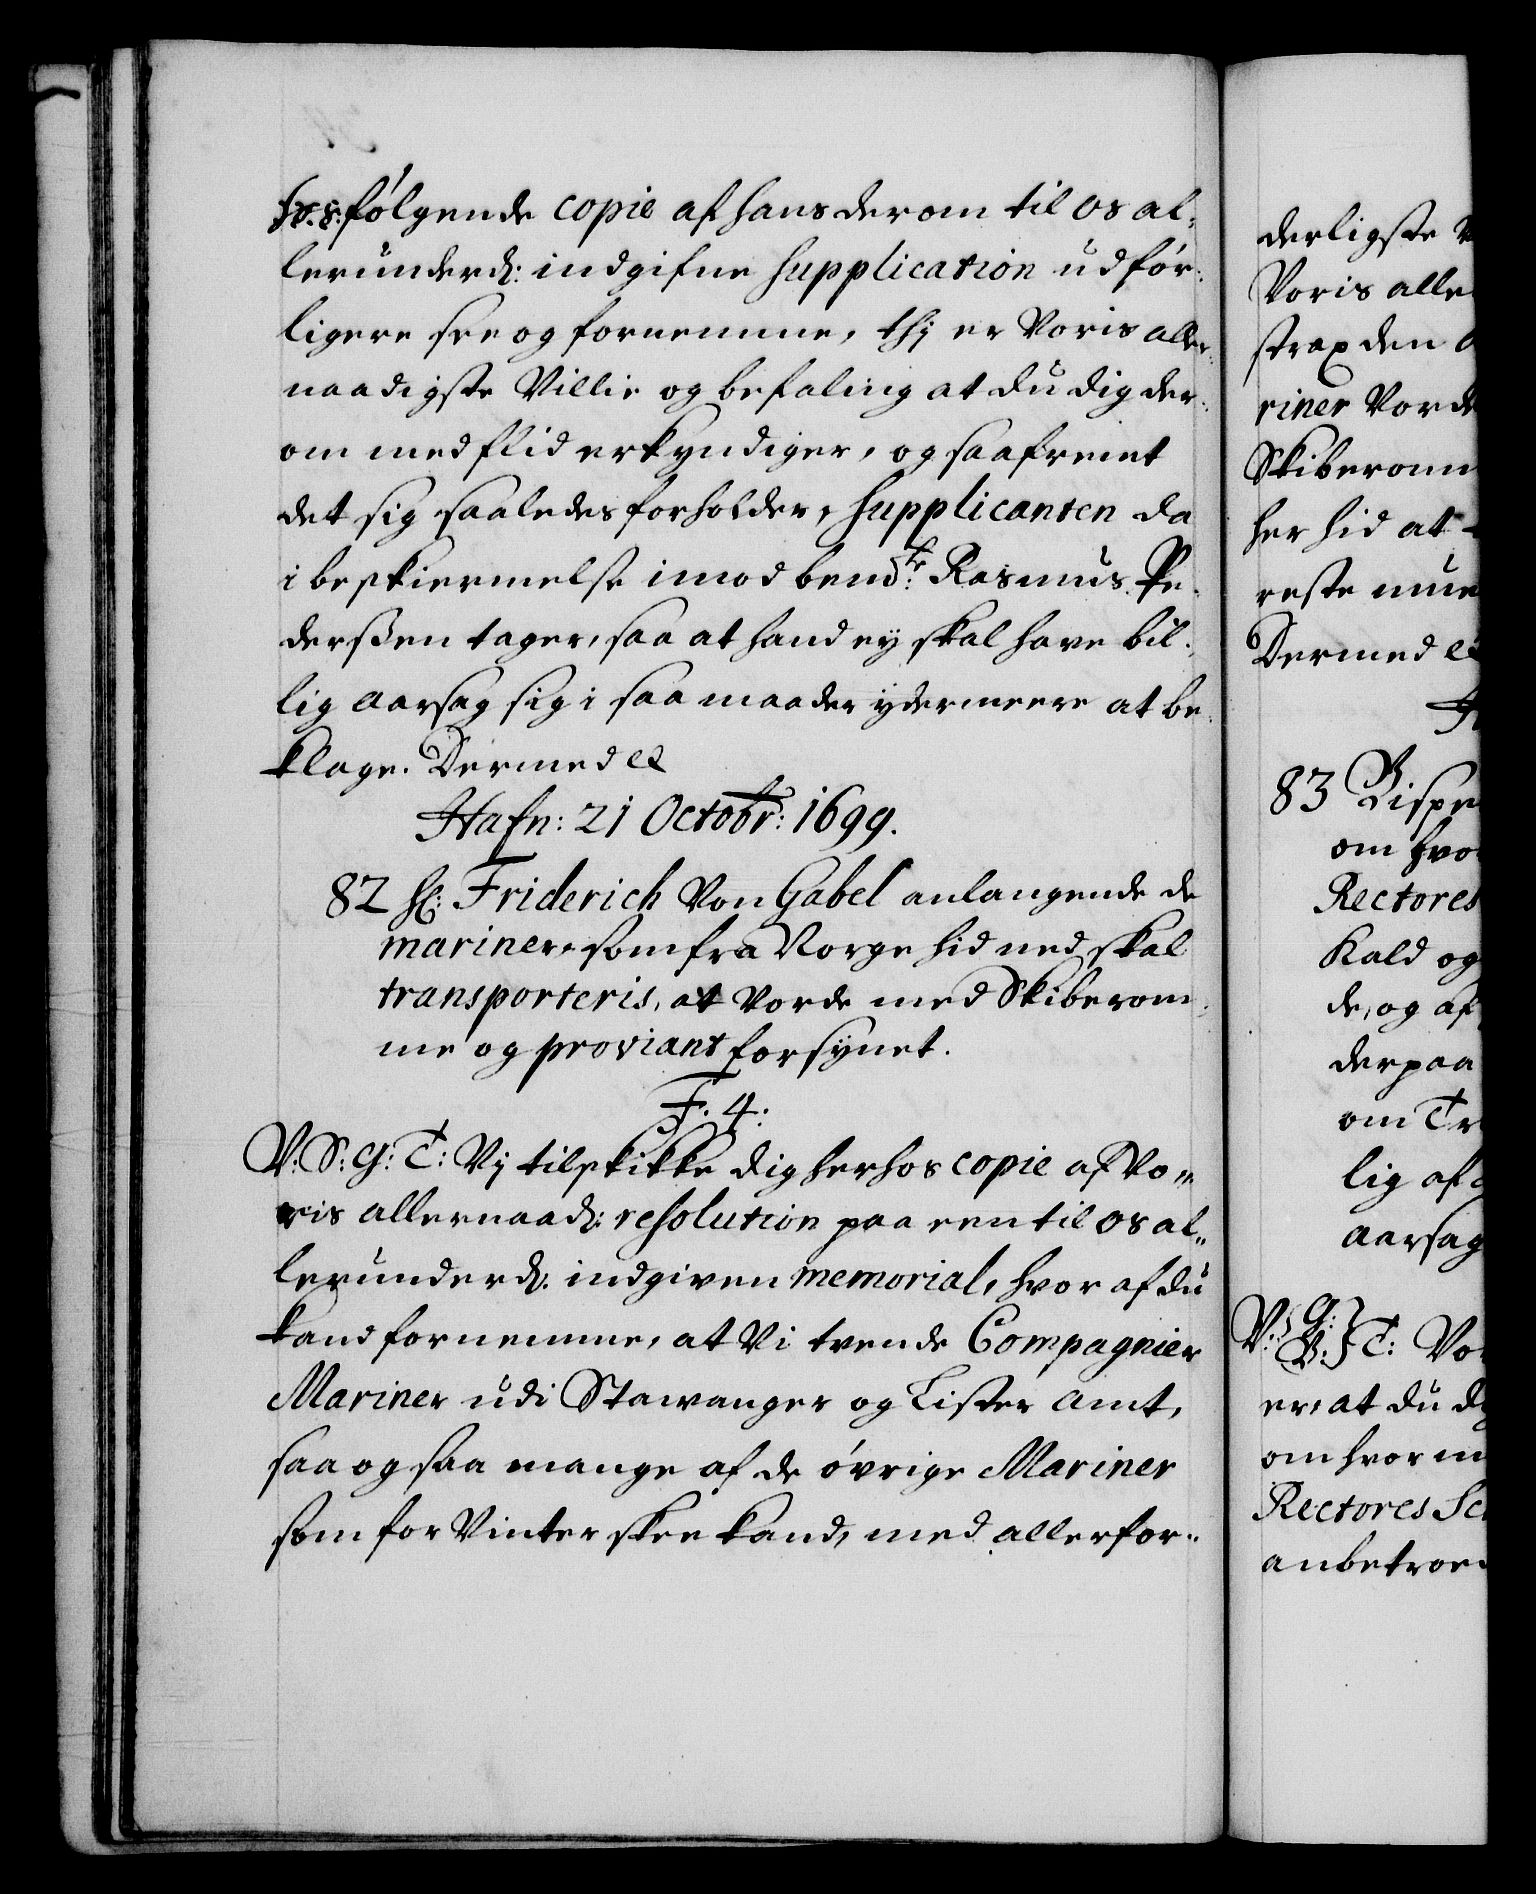 følgende copie af hans derom til os al-
lerunderd: indgifne supplication udför-
ligere see og fornemme, thi er Voris aller-
naadigste Villie og befaling at du dig der-
om med flid erkyndiger, og saafremt
det sig saaledes forholder, supplicanten da
i beskiermelse imod bemte: Rasmus Pe-
derssen tager, saa at hand ey skal have bil-
lig aarsag sig i saa maader ydermeere at be-
klage. Dermed etc
Hafn: 21 Octobr: 1699.
82 Hr: Friderich Von Gabel anlangende de
mariner, som fra Norge hid ned skal
transporteris, at vorde med Skiberom-
me og proviant forsynet.
F. 4:
V: S: G: T: Vi tilskikke dig herhos copie af Vo-
ris allernaad: resolution paa een til os al-
lerunderd: indgiven memorial, hvor af du
kand fornemme, at Vi trende Compagnier
Mariner udi Stawanger og Lister Amt,
saa og saa mange af de övrige Mariner
som for Vinter skee kand, med allerfor-
derligste
Voris alle
strax den
riner vorde
Skiberom
her hid at
reste mue
Dermed etc
83 Bispe
om hvor
Rectores
Kald og
de, og af
derpaa
om Tr
lig af
aarsag
V: G: B: T: Vor
er, at du dig
om hvor m
Rectores Sc
anbetroe